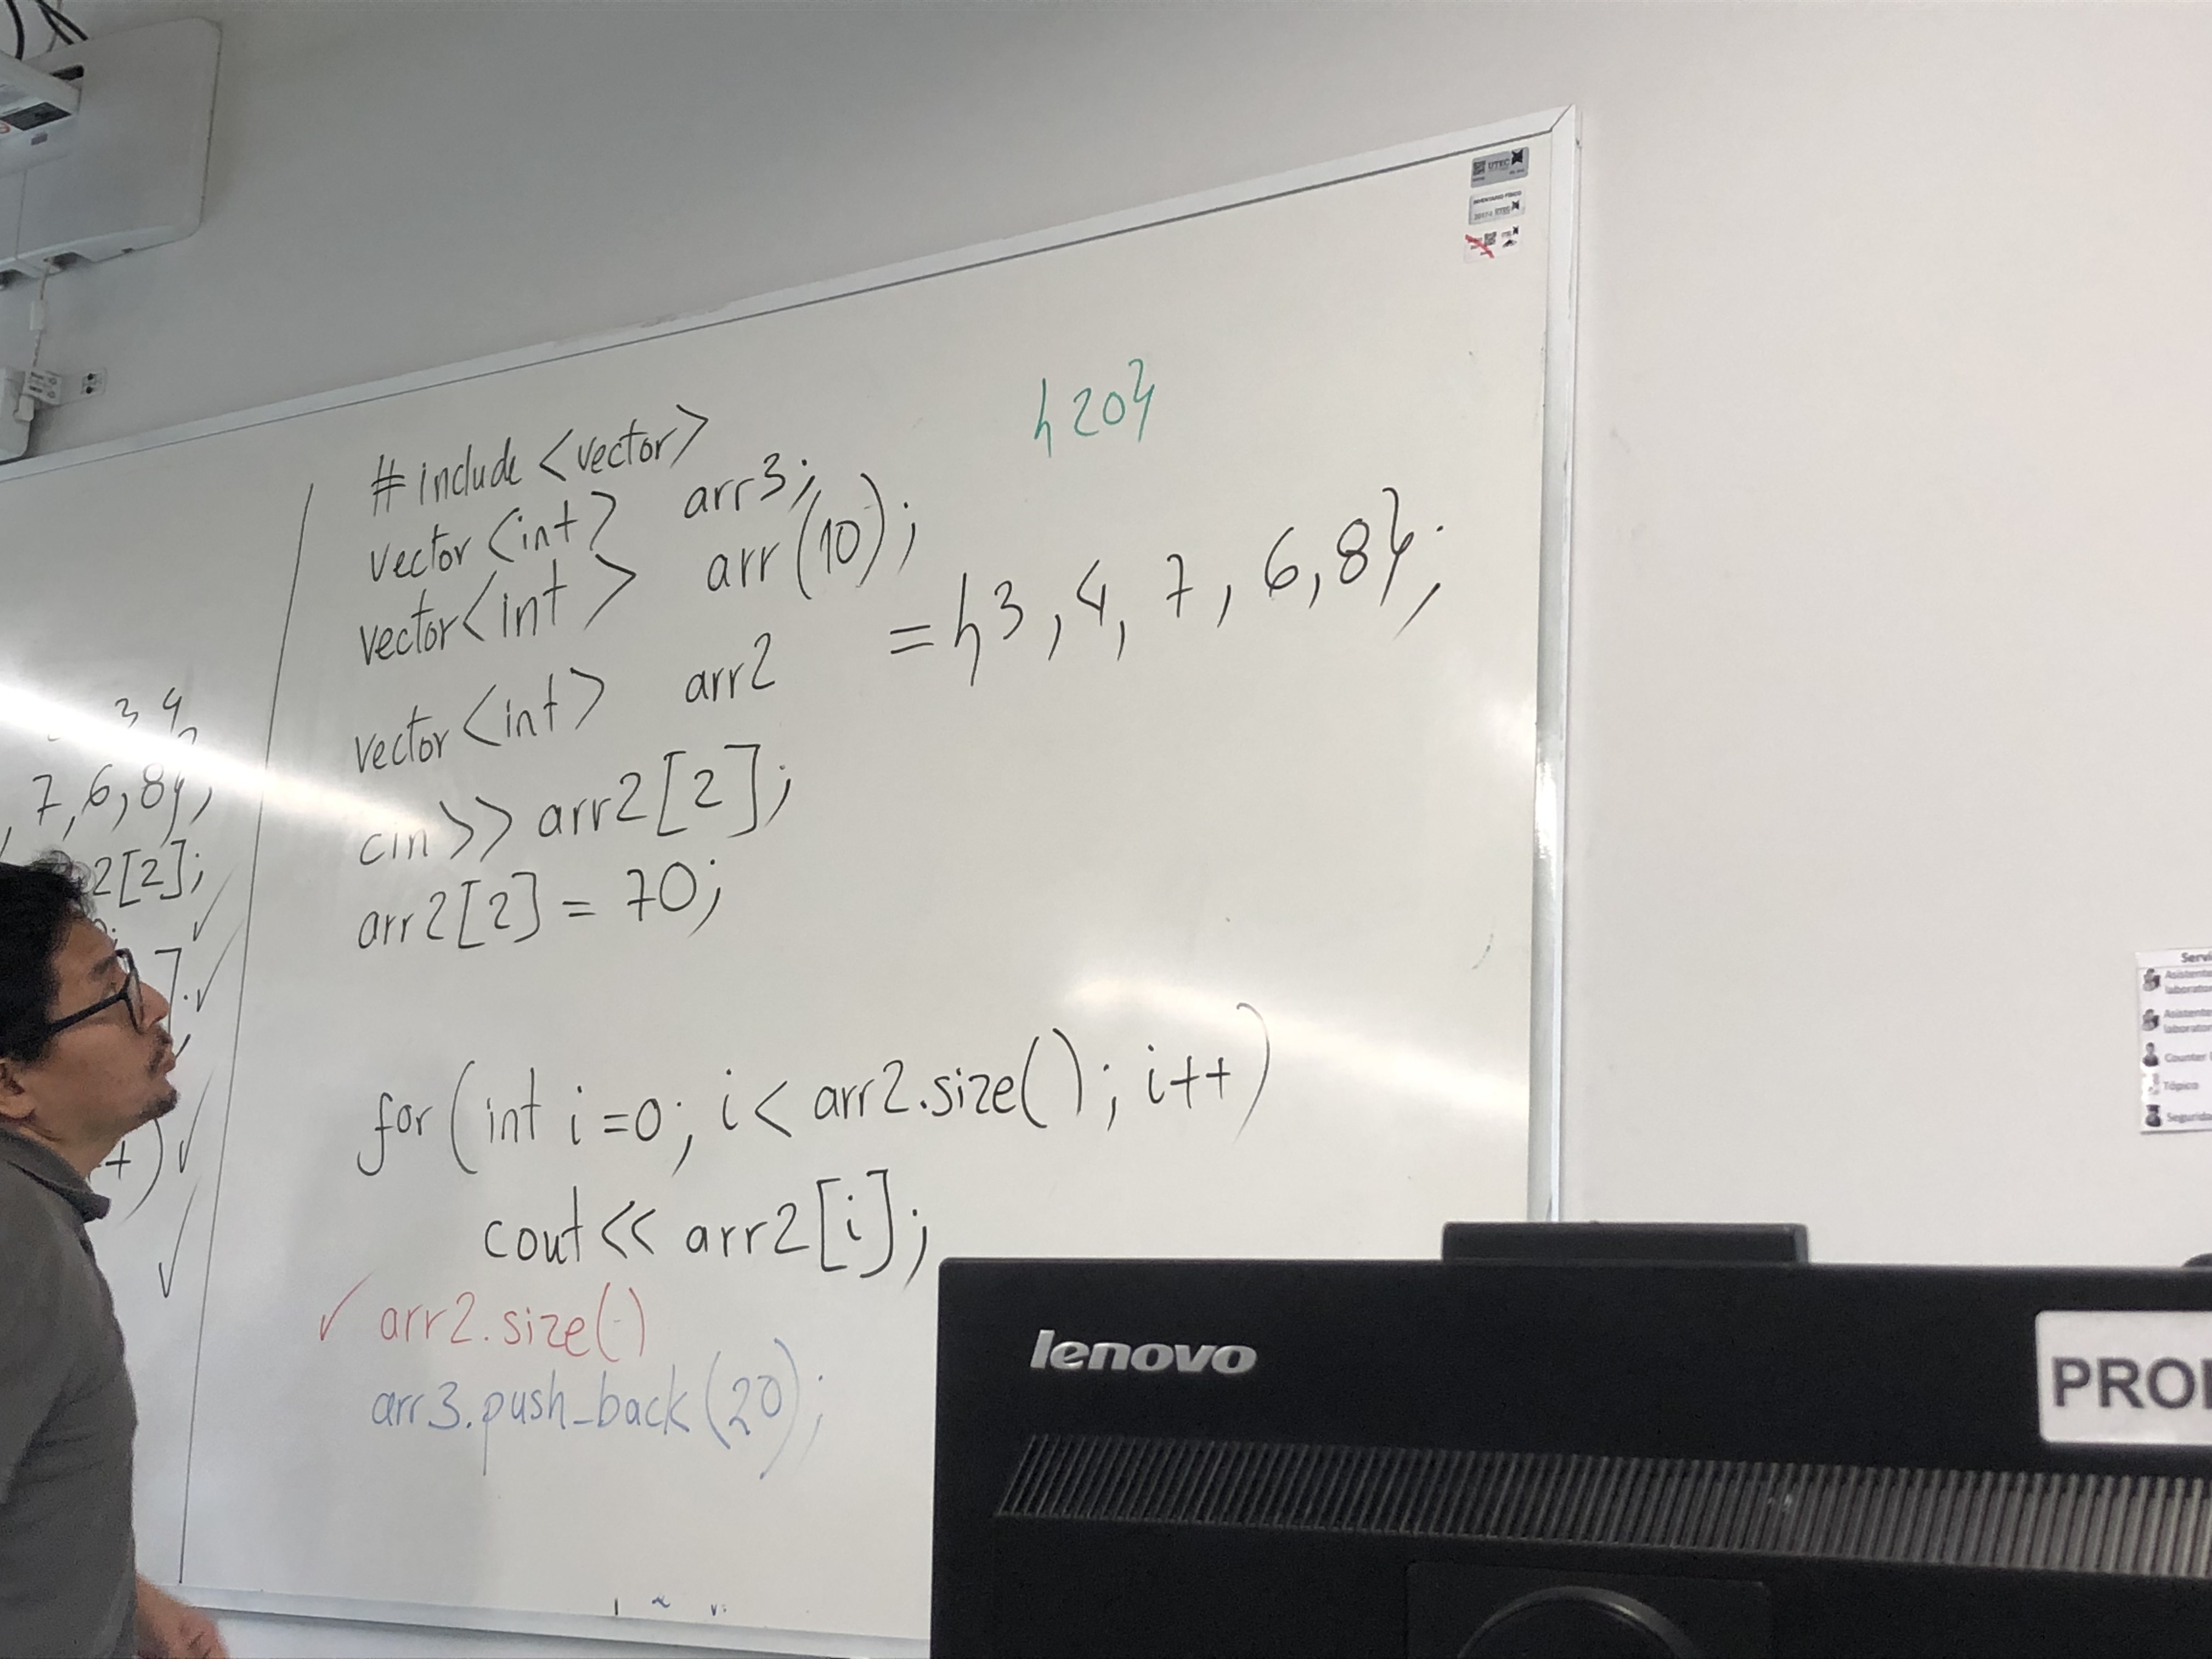 3 4
7, 6, 8};
2[2];
+)
#include <vector>
vector <int> arr3;
vector<int> arr(10);
vector<int> arr2 = {3, 4, 7, 6, 8};
cin >> arr2[2];
arr2[2] = 70;
for (int i=0; i< arr2.size(); i++)
cout << arr2[i];
✓ arr2.size()
arr3.push_back(20);
{20}
UTEC
INVENTARIO FISICO
lenovo
PRO
Servi
Asistente
laborator
Asistente
laborator
Counter
Tópico
Segurida